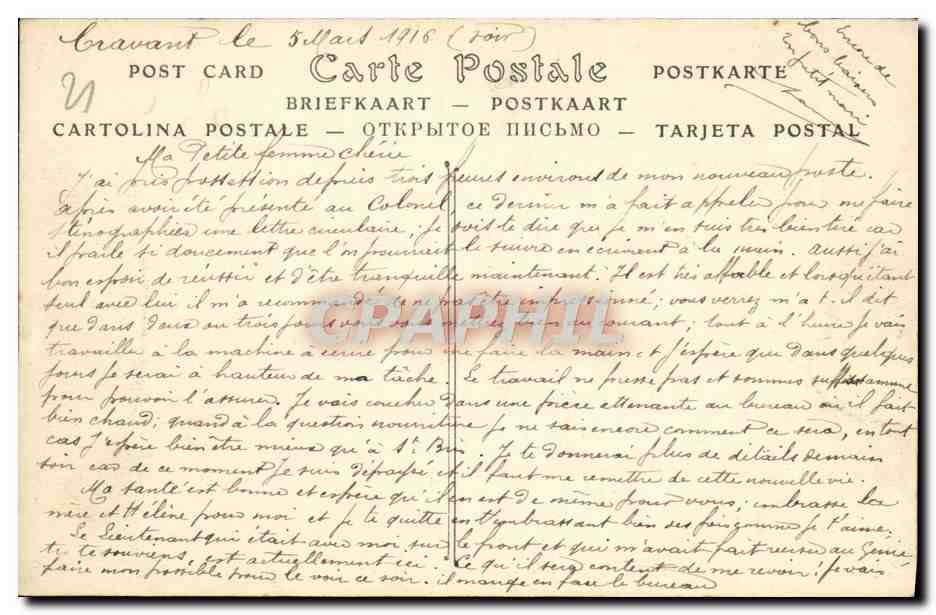 Cravant le 5 Mars 1916 (soir)
Encore de
bons baisers
Ton petit mari
21
POST CARD Carte Postale POSTKARTE
BRIEFKAART — POSTKAART
CARTOLINA POSTALE — ОТКРЫТОЕ ПИСЬМО — TARJETA POSTAL
Ma Petite femme chérie
J'ai pris possession depuis trois heures environs de mon nouveau poste.
Après avoir été présenté au Colonel, ce dernier m'a fait appeler pour me faire
sténographier une lettre circulaire; je dois te dire que je m'en suis très bien tiré car
il parle si doucement que l'on pourrait le suivre en écrivant à la main. Aussi j'ai
bon espoir de réussir et d'être tranquille maintenant. Il est très affable et lorsqu'étant
seul avec lui il m'a recommandé de ne pas être impressionné; vous verrez m'a-t-il dit
que dans deux ou trois jours vous vous mettrez bien au courant; tout à l'heure je vais
travailler à la machine à écrire pour me faire la main et j'espère que dans quelques
jours je serai à hauteur de ma tâche. Le travail ne presse pas et sommes suffisamment
pour pouvoir l'assurer. Je vais coucher dans une pièce attenante au bureau où il fait
bien chaud; quand à la question nourriture je ne sais encore comment ce sera, en tout
cas j'espère bien être mieux qu'à St Bris. Je te donnerai plus de détails demain
soir car de ce moment je suis dépaysé et il faut me remettre de cette nouvelle vie.
Ma santé est bonne et espère qu'il en est de même pour vous; embrasse la
mère et Hélène pour moi et je te quitte en t'embrassant bien des fois comme je t'aime.
Le Lieutenant qui était avec moi sur le front et qui m'avait fait au Génie
tu te souviens, est actuellement ici. Ce qu'il sera content de me revoir! je vais
faire mon possible pour le voir ce soir. il mange en face le bureau
CPAPHIL